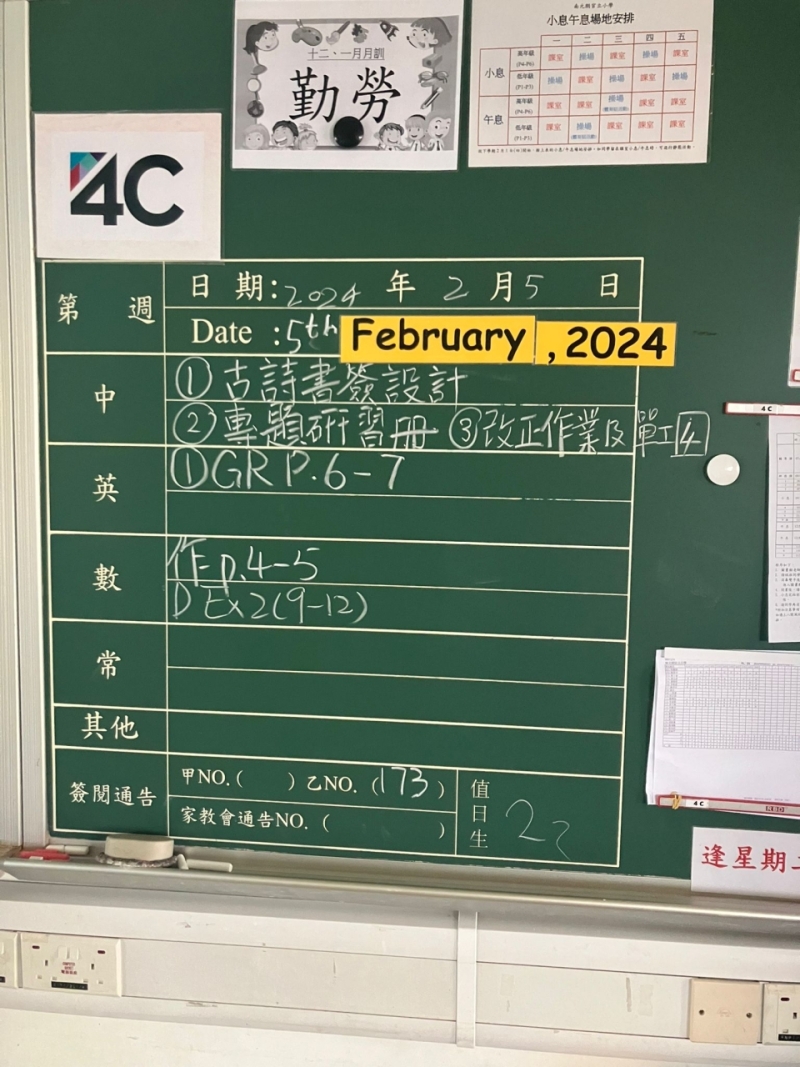 十二、一月月訓
勤勞
小息午息場地安排
一 二 三 四 五
小息
高年級 (P4-P6) 課室 操場 課室 操場 課室
低年級 (P1-P3) 操場 課室 操場 課室 操場
午息
高年級 (P4-P6) 課室 課室 操場 課室 課室
低年級 (P1-P3) 課室 操場 課室 課室 課室
4C
第 週
日 期: 2024 年 2 月 5 日
Date : 5th February , 2024
中
① 古詩書簽設計
② 專題研習冊 ③改正作業及單工4
英
① GR P.6-7
數
作 p.4-5
D Ex2(9-12)
常
其他
簽閱通告
甲NO.( ) 乙NO. (173)
家教會通告NO. ( )
值日生
4C
4C
逢星期二